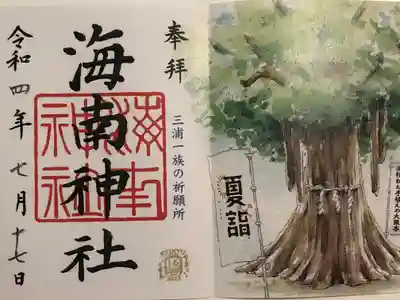 奉拝
三浦一族の祈願所
海南神社
令和四年七月十七日
夏詣